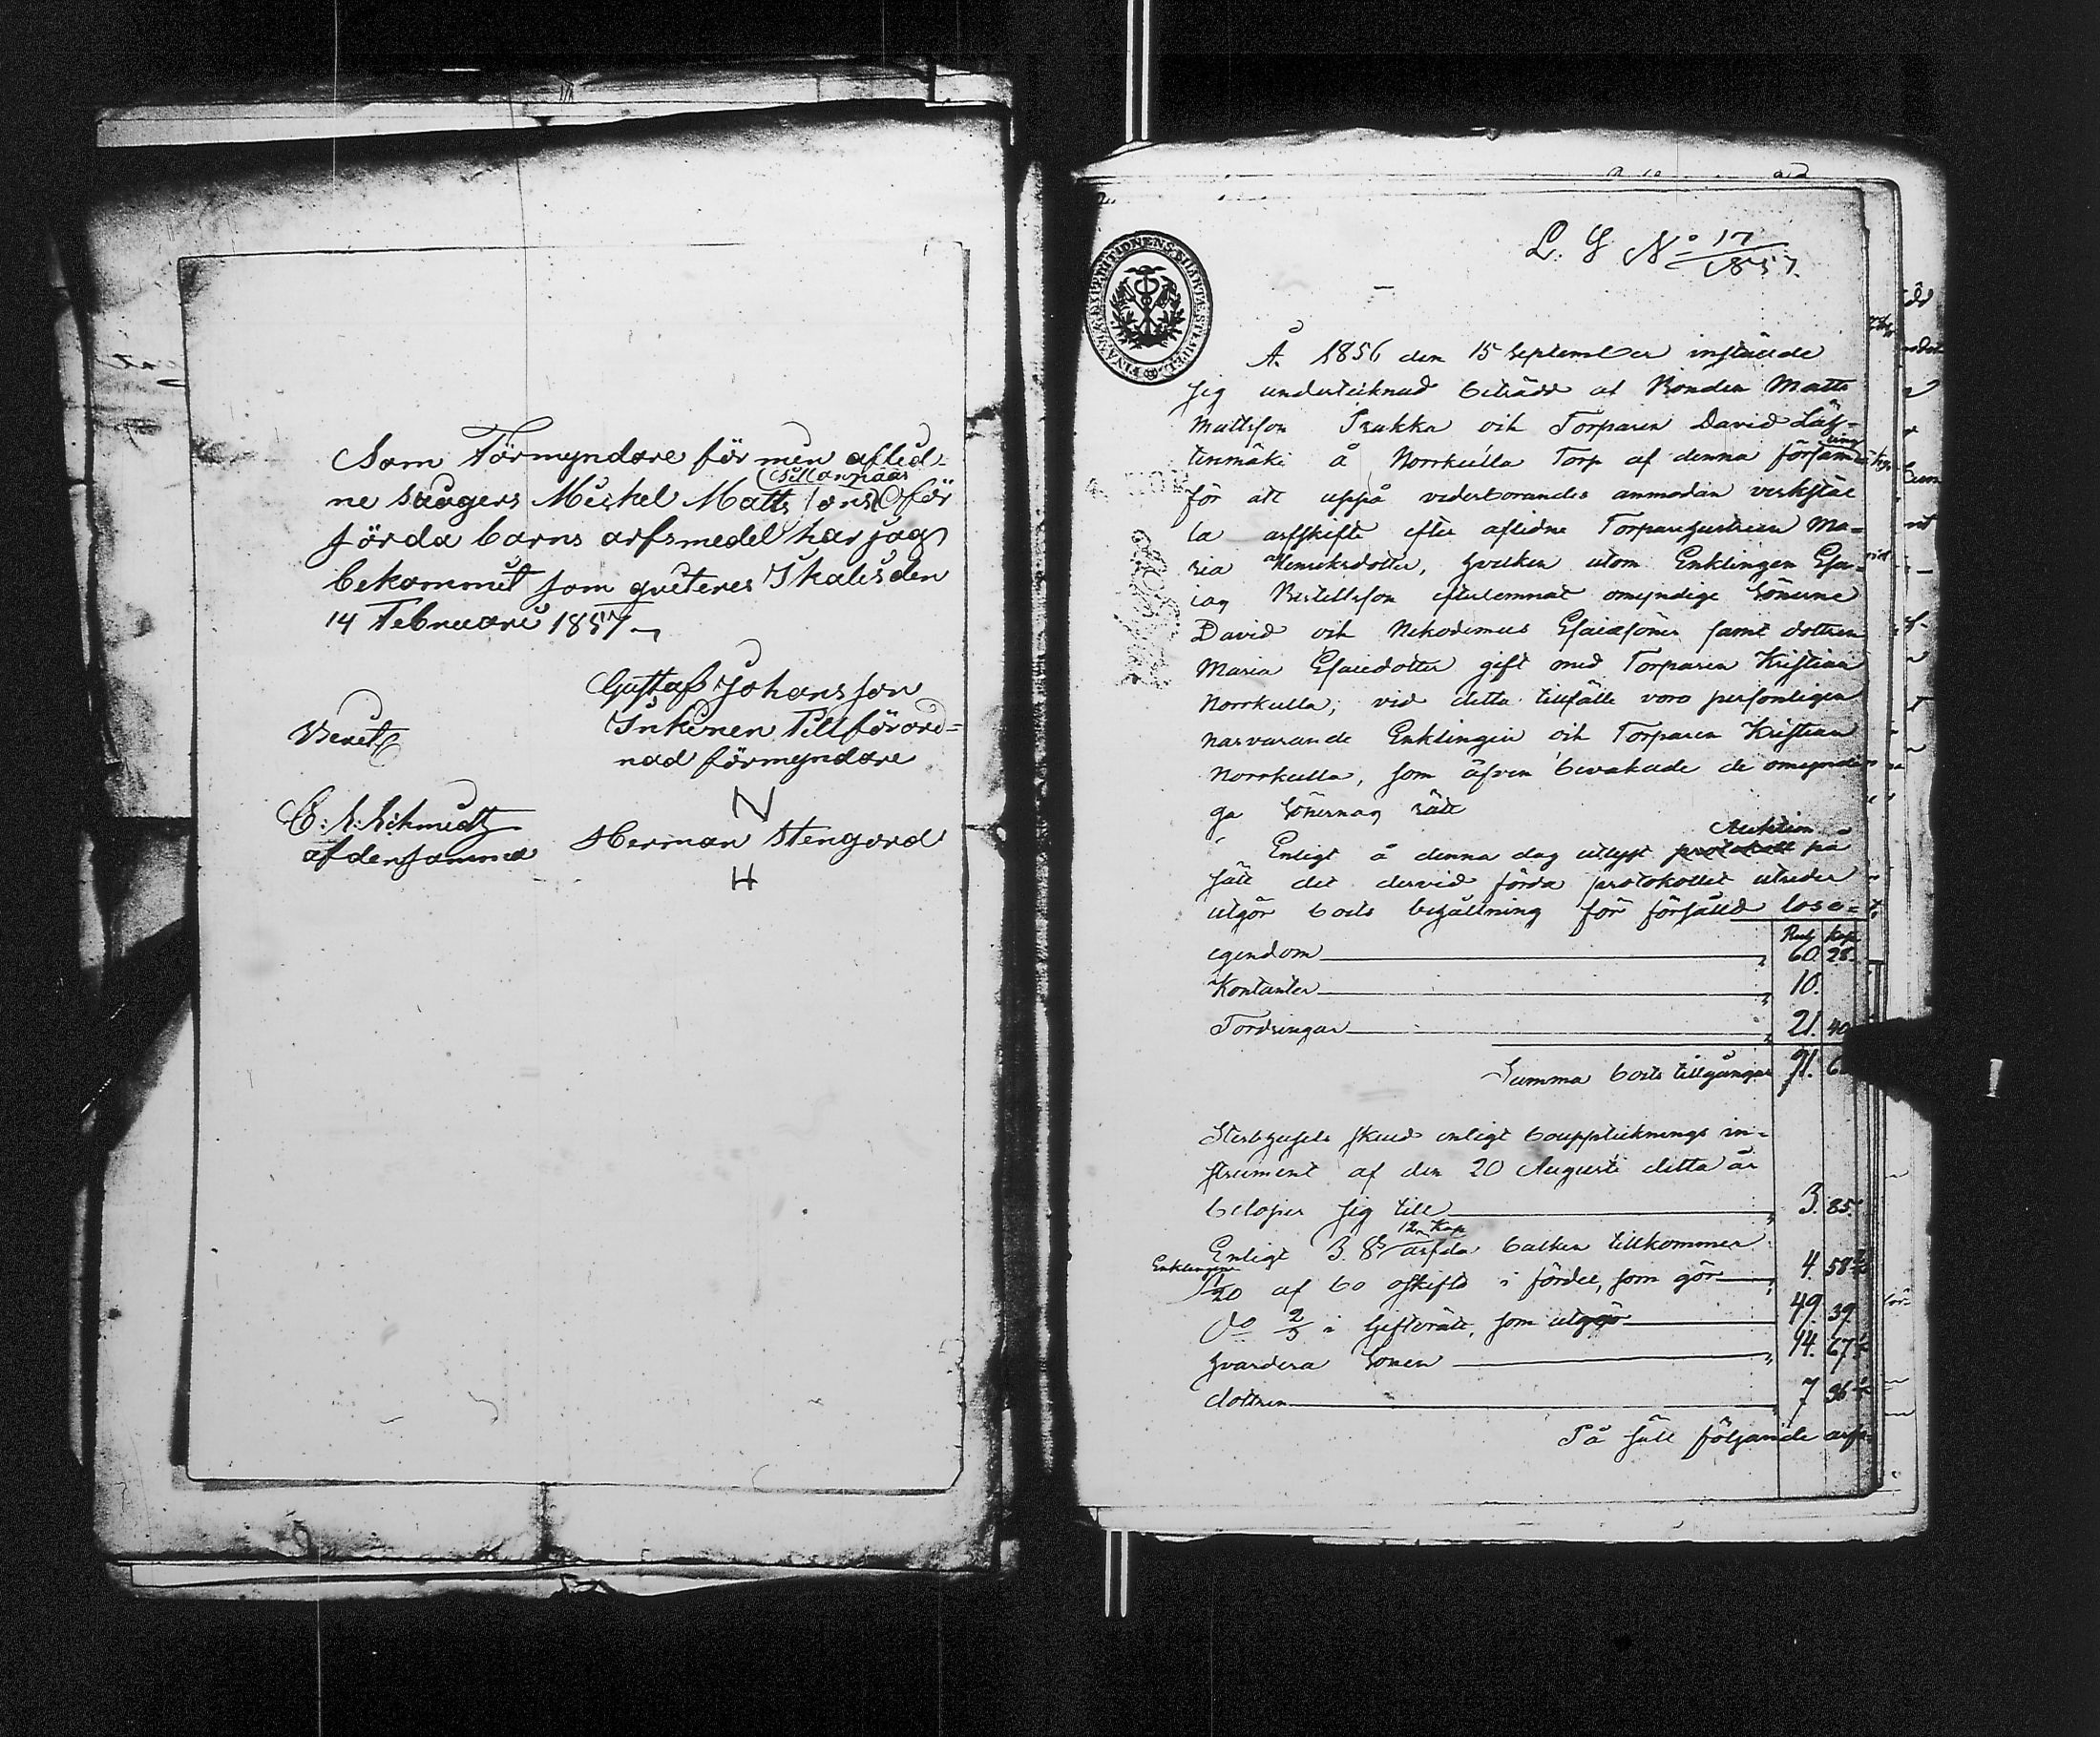 Som Förmyndare för min aflid-
ne svågers Mickel Matts sons Sillanpääs för
sörda barns arfsmedel har jag
bekommit som qviteres Ikalis den
14 Februari 1857
Gustaf Johansson
Inkinen Tillförord-
nad förmyndare
Bevit
N
Herman Stengård
H
afdensamma
L. G No 17
1857.
År 1856 den 15 September instälde
sig undertecknad biträdd af Bonden Matts
Mattsson Prakka och Torparen David Läs-
tinmäki å Norrkulla Torp af denna församling
för att uppå vederborandes anmodan verkstäl
la arfskifte efter aflidne Torparehustrun Ma-
ria Henriksdotter, hvilken utom Enklingen Esa-
ias efterlemnat omyndige Sönerne
David och Nikodemus Esaiasöner samt dottren
Maria Esaiedotter gift med Torparen Kristian
Norrkulla; vid detta tillfälle voro personligen
narvarande Enklingen och Torparen Kristian
Norrkulla, som äfven bevakade de omyndi
ga Sönernas rätt
Enligt å denna dag utlyst protokoll Auktion på
sätt det dervid förda protokollet utreder
utgör boets behållning för försåld lösa-
Rub Kop
egendom 60. 28.
Kontanter 10.
Fordringar 21. 40
Summa boets tillgångar 91.
Sterbhusets skuld enligt bouppteknings in-
strument af den 20 Augusti detta år
beloper sig till 3. 85.
Enligt 3. § 12 Kap ärfda balken tillkommer
Enklingen 1/20 af bo oskifto i fördel, som gör 4. 58
do 2/3 i Giftorätt, som utgör 49. 39
hvardera Sonen 14. 67
dottren 7 36
På sätt följande arfs-